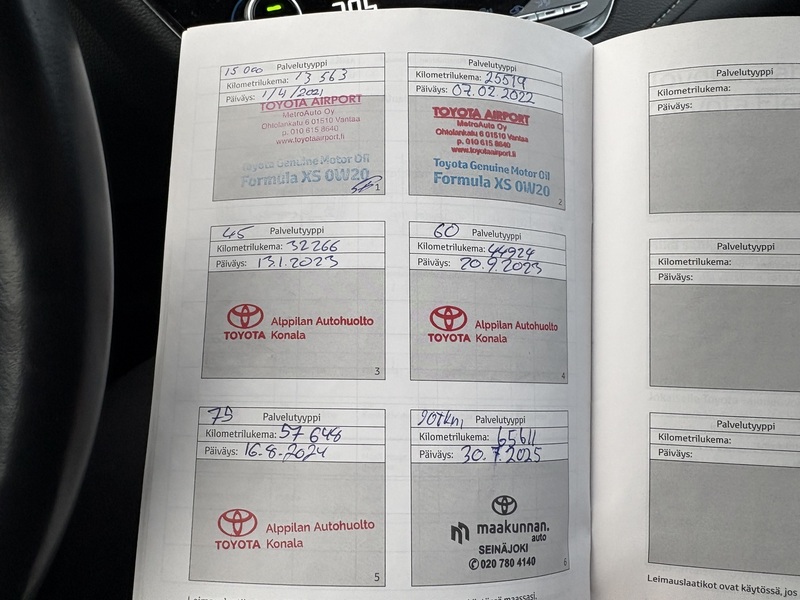 15 000 Palvelutyyppi
Kilometrilukema: 13 563
Päiväys: 1/4/2021
TOYOTA AIRPORT
MetroAuto Oy
Ohtolankatu 6 01510 Vantaa
p. 010 615 8640
www.toyotaairport.fi
Toyota Genuine Motor Oil
Formula XS 0W20
1
Palvelutyyppi
Kilometrilukema: 25519
Päiväys: 07.02.2022
TOYOTA AIRPORT
MetroAuto Oy
Ohtolankatu 6 01510 Vantaa
p. 010 615 8640
www.toyotaairport.fi
Toyota Genuine Motor Oil
Formula XS 0W20
2
45 Palvelutyyppi
Kilometrilukema: 32266
Päiväys: 13.1.2023
TOYOTA
Alppilan Autohuolto
Konala
3
60 Palvelutyyppi
Kilometrilukema: 44924
Päiväys: 20.9.2023
TOYOTA
Alppilan Autohuolto
Konala
4
75 Palvelutyyppi
Kilometrilukema: 57 648
Päiväys: 16.8.2024
TOYOTA
Alppilan Autohuolto
Konala
5
90tkm Palvelutyyppi
Kilometrilukema: 65611
Päiväys: 30.7.2025
maakunnan.
auto
SEINÄJOKI
020 780 4140
6
maassasi.
Palvelutyyppi
Kilometrilukema:
Päiväys:
Palvelutyyppi
Kilometrilukema:
Päiväys:
Palvelutyyppi
Kilometrilukema:
Päiväys:
Leimauslaatikot ovat käytössä, jos